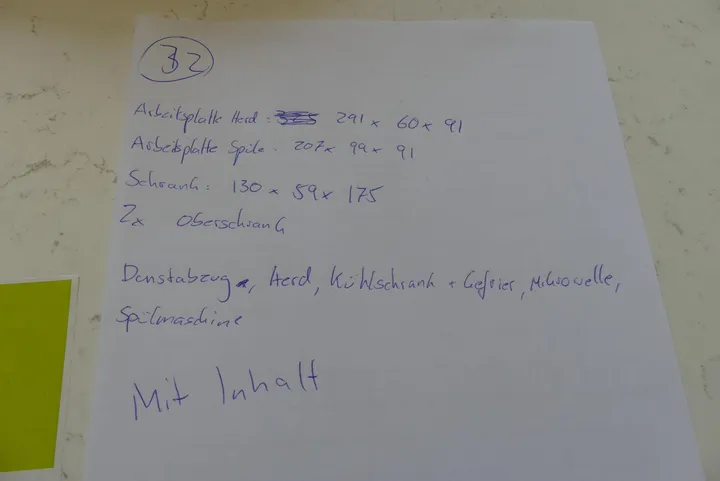 32
Arbeitsplatte Herd: 291 x 60 x 91
Arbeitsplatte Spüle: 207 x 99 x 91
Schrank: 130 x 59 x 175
2x Oberschrank
Dunstabzug, Herd, Kühlschrank + Gefrier, Mikrowelle,
Spülmaschine
Mit Inhalt